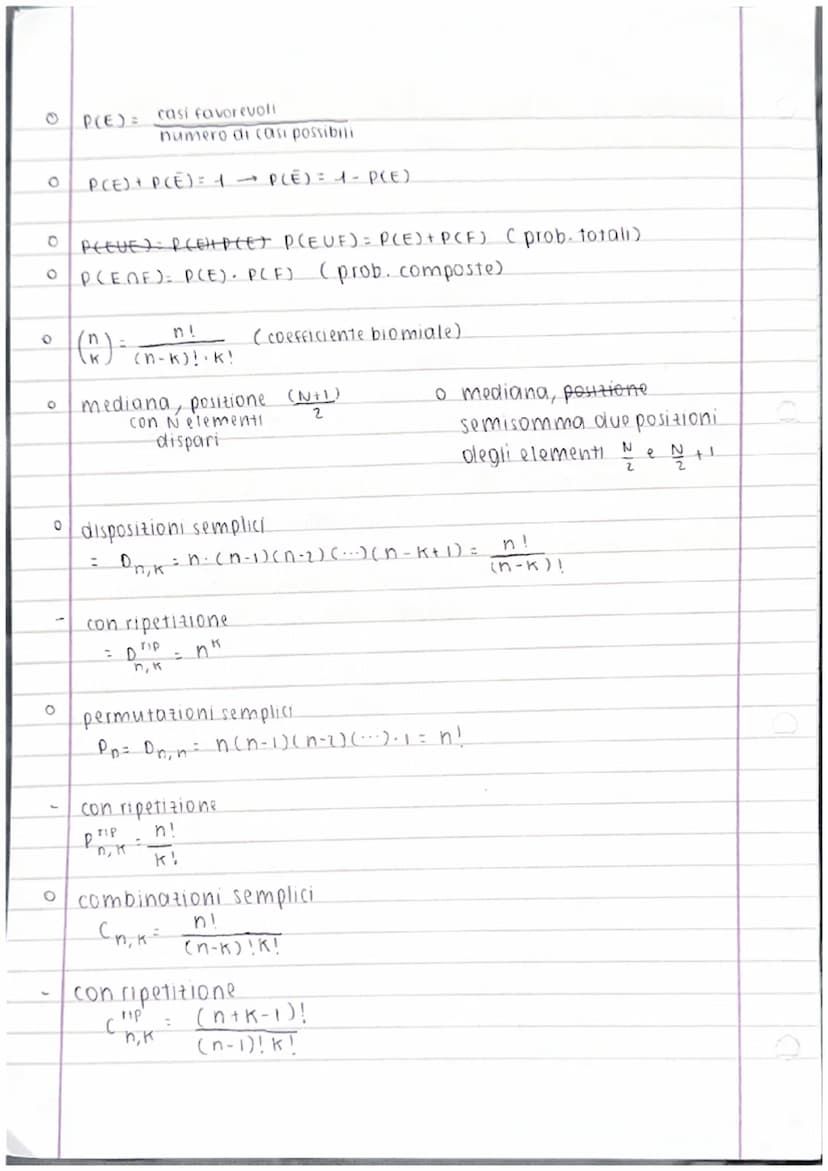 P(E) = casi favorevoli / numero di casi possibili
P(E) + P(Ē) = 1 → P(Ē) = 1 - P(E)
P(EUE) = P(E)+P(E) P(EUF) = P(E) + P(F) (prob. totali)
P(E∩F) = P(E) · P(F) (prob. composte)
(n K) = n! / (n-K)! · K! (coefficiente biomiale)
mediana, positione (N+1)/2
con N elementi
dispari
mediana, posizione
semisomma due posizioni
degli elementi N/2 e N/2 + 1
disposizioni semplici
= Dn,K = n · (n-1)(n-2)(...)(n-K+1) = n! / (n-K)!
- con ripetizione
= D rip n,K = n^K
permutazioni semplici
Pn = Dn,n = n(n-1)(n-2)(...) · 1 = n!
- con ripetizione
P rip n,K = n! / K!
combinazioni semplici
Cn,K = n! / (n-K)! K!
- con ripetitione
C rip n,K = (n+K-1)! / (n-1)! K!